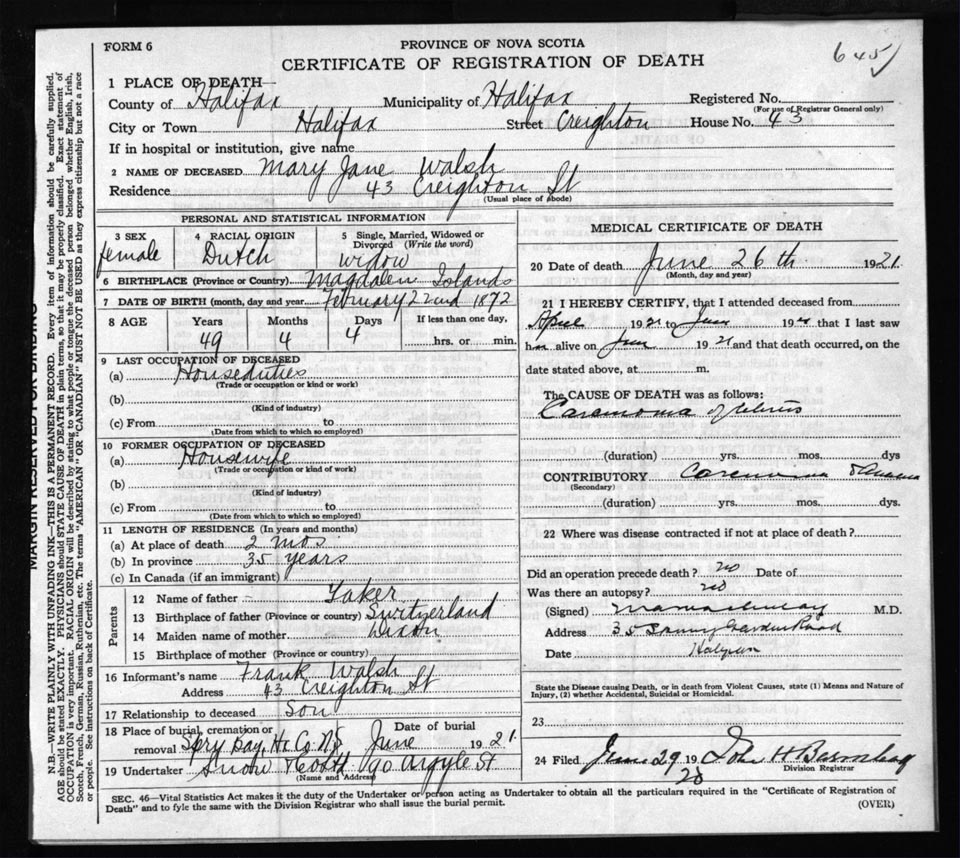 FORM 6
PROVINCE OF NOVA SCOTIA
645
CERTIFICATE OF REGISTRATION OF DEATH
1 PLACE OF DEATH
County of Halifax Municipality of Halifax Registered No.
(For use of Registrar General only)
City or Town Halifax Street Creighton House No. 43
If in hospital or institution, give name
2 NAME OF DECEASED Mary Jane Walsh
Residence 43 Creighton St
(Usual place of abode)
PERSONAL AND STATISTICAL INFORMATION
3 SEX female
4 RACIAL ORIGIN Dutch
5 Single, Married, Widowed or Divorced (Write the word) widow
6 BIRTHPLACE (Province or Country) Magdalen Islands
7 DATE OF BIRTH (month, day and year) February 22nd 1872
8 AGE Years 49 Months 4 Days 4 If less than one day, hrs. or min.
9 LAST OCCUPATION OF DECEASED
(a) Houseduties
(Trade or occupation or kind or work)
(b)
(Kind of industry)
(c) From to
(Date from which to which so employed)
10 FORMER OCCUPATION OF DECEASED
(a) Housewife
(Trade or occupation or kind of work)
(b)
(Kind of industry)
(c) From to
(Date from which to which so employed)
11 LENGTH OF RESIDENCE (In years and months)
(a) At place of death 2 mos
(b) In province 35 years
(c) In Canada (if an immigrant)
Parents
12 Name of father Taker
13 Birthplace of father (Province or country) Switzerland
14 Maiden name of mother Dixon
15 Birthplace of mother (Province or country)
16 Informant's name Frank Walsh
Address 43 Creighton St
17 Relationship to deceased Son
18 Place of burial, cremation or removal Spry Bay, Hx Co NS Date of burial June 1921
19 Undertaker Snow & Co Ltd 90 Argyle St
(Name and Address)
MEDICAL CERTIFICATE OF DEATH
20 Date of death June 26th 1921
(Month, day and year)
21 I HEREBY CERTIFY, that I attended deceased from
April 1921 to June 1921 that I last saw
her alive on June 1921 and that death occurred, on the
date stated above, at m.
The CAUSE OF DEATH was as follows:
Carcinoma of Uterus
(duration) yrs. mos. dys
CONTRIBUTORY Carcinoma
(Secondary)
(duration) yrs. mos. dys.
22 Where was disease contracted if not at place of death?
Did an operation precede death? no Date of
Was there an autopsy? no
(Signed) M.D.
Address 35 Road
Date Halifax
State the Disease causing Death, or in death from Violent Causes, state (1) Means and Nature of
Injury, (2) whether Accidental, Suicidal or Homicidal.
23
24 Filed June 29 19 John H
28
Division Registrar
SEC. 46—Vital Statistics Act makes it the duty of the Undertaker or person acting as Undertaker to obtain all the particulars required in the "Certificate of Registration of
Death" and to fyle the same with the Division Registrar who shall issue the burial permit.
(OVER)
MARGIN RESERVED FOR BINDING
N.B.—WRITE PLAINLY WITH UNFADING INK—THIS IS A PERMANENT RECORD. Every item of information should be carefully supplied.
AGE should be stated EXACTLY. PHYSICIANS should STATE CAUSE OF DEATH in plain terms, so that it may be properly classified. Exact statement of
OCCUPATION is very important. RACIAL ORIGIN will be described by stating to what people or tongue the deceased person belonged whether English, Irish,
Scotch, French, German, Russian, Ruthenian, etc. The terms "AMERICAN" OR "CANADIAN" MUST NOT BE USED as they express citizenship but not a race
or people. See instructions on back of Certificate.